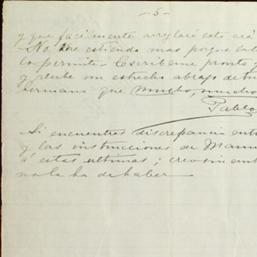 - 5 -
y que facilmente arreglaré esto acá
No me estiendo mas porque
lo permite. Escribeme pronto y
y recibe un estrecho abrazo de tu
hermano que mucho, mucho
Pablo
Si encuentras discrepancia entre
y las instrucciones de Manu
á estas ultimas; creo sin em
no la ha de haber.